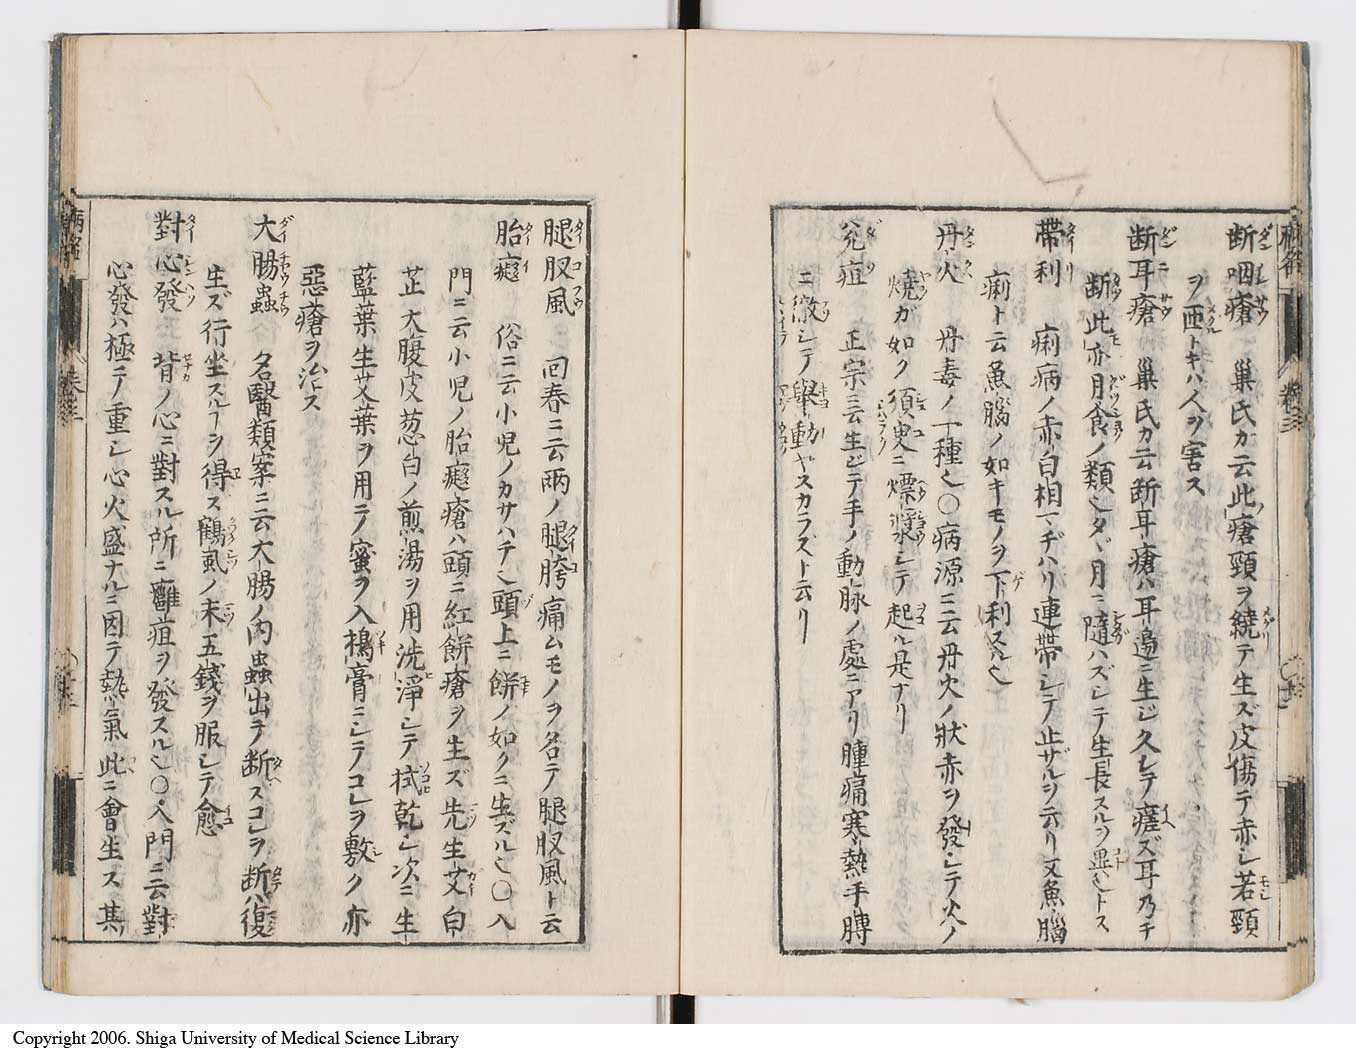 断咽瘡 巢氏カ云此瘡頸ヲ繞テ生ズ皮傷テ赤シ若頸
ヲ匝トキハ人ヲ害ス
断耳瘡 巢氏カ云断耳瘡ハ耳邉ニ生ジ久シテ瘥ズ耳乃チ
断此亦月食ノ類也タヾ月ニ隨ハズシテ生長スルヲ異也トス
帶利 痢病ノ赤白相マヂハリ連帶シテ止ザルヲ云リ又魚腦
痢ト云魚腦ノ如キモノヲ下利スル也
丹火 丹毒ノ一種也〇病源ニ云丹火ノ狀赤ヲ發シテ火ノ
燒ガ如ク須臾ニ熛漿シテ起ル是ナリ
兊疽 正宗ニ云生ジテ手ノ動脉ノ處ニアリ腫痛寒熱手膊
ニ徹シテ擧動ヤスカラズト云リ
腿㕚風 回春ニ云兩ノ腿胯痛ムモノヲ名テ腿㕚風ト云
胎癥 俗ニ云小児ノカサハテ也頭上ニ餅ノ如クニ生スル也〇入
門ニ云小児ノ胎癥瘡ハ頭ニ紅餅瘡ヲ生ズ先生艾白
芷大腹皮葱白ノ煎湯ヲ用洗淨シテ拭乾シ次ニ生
藍葉生艾葉ヲ用テ蜜ヲ入搗膏ニシテコレヲ敷ク亦
惡瘡ヲ治ス
大腸蟲 名醫類案ニ云大腸ノ内蟲出テ断スコレヲ断ハ復
生ズ行坐スルヿヲ得ス鶴虱ノ末五錢ヲ服シテ愈
對心發 背ノ心ニ對スル所ニ癰疽ヲ發スル也〇入門ニ云對
心發ハ極テ重シ心火盛ナルニ因テ熱氣此ニ會生ス其
Copyright 2006. Shiga University of Medical Science Library